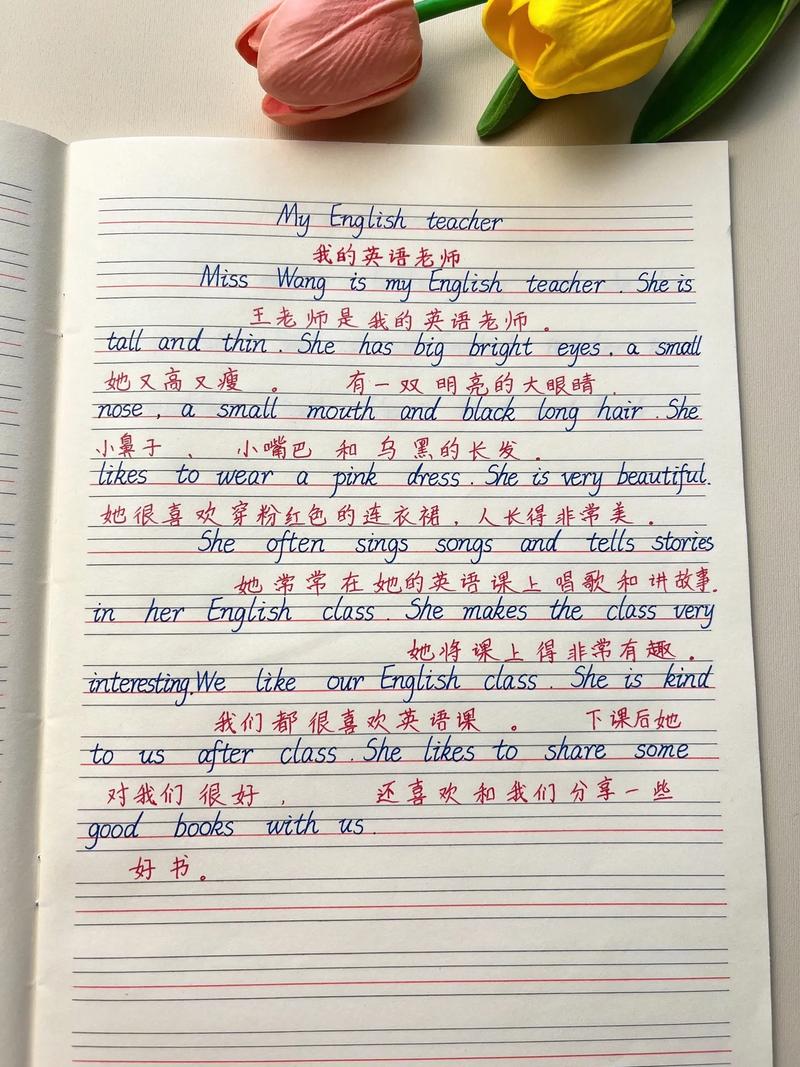 My English teacher
我的英语老师
Miss Wang is my English teacher. She is
王老师是我的英语老师。
tall and thin. She has big bright eyes, a small
她又高又瘦。 有一双明亮的大眼睛,
nose, a small mouth and black long hair. She
小鼻子、小嘴巴和乌黑的长发。
likes to wear a pink dress. She is very beautiful.
她很喜欢穿粉红色的连衣裙,人长得非常美。
She often sings songs and tells stories
她常常在她的英语课上唱歌和讲故事.
in her English class. She makes the class very
她将课上得非常有趣。
interesting. We like our English class. She is kind
我们都很喜欢英语课。 下课后她
to us after class. She likes to share some
对我们很好, 还喜欢和我们分享一些
good books with us.
好书。